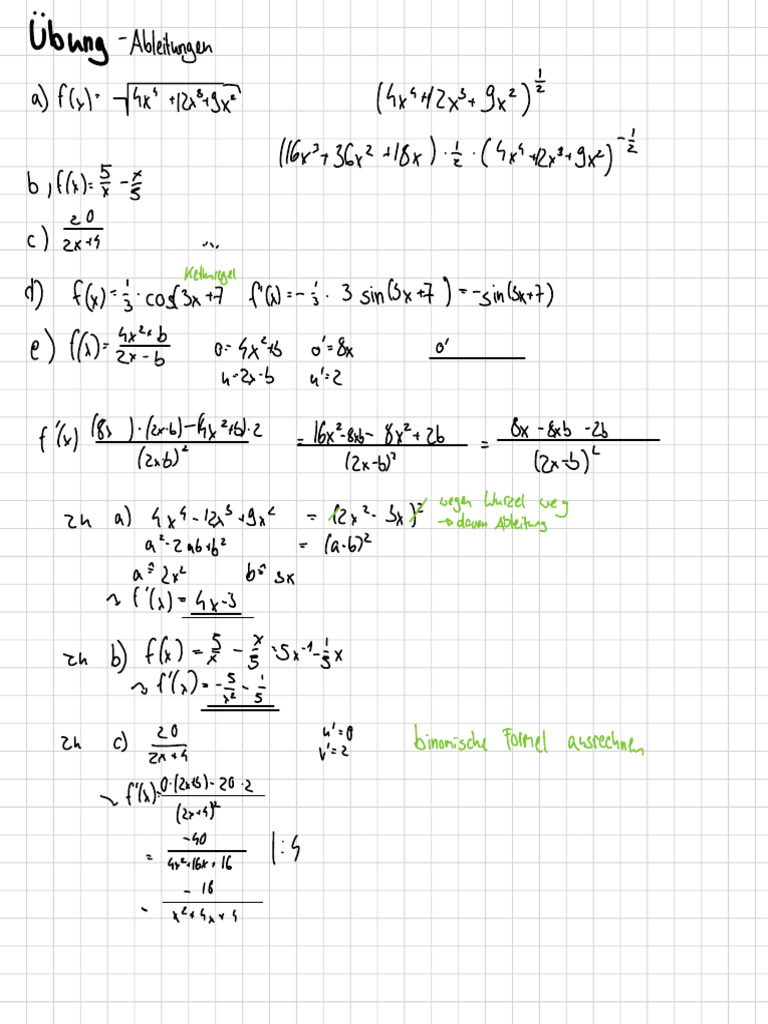 Übung - Ableitungen
a) f(x) = √(4x⁴ + 12x³ + 9x²) (4x⁴ + 12x³ + 9x²)^(1/2)
(16x³ + 36x² + 18x) · 1/2 · (4x⁴ + 12x³ + 9x²)^(-1/2)
b) f(x) = 5/x - x/5
c) 20/(2x+4) ...
Kettenregel
d) f(x) = 1/3 · cos(3x+7 f'(x) = -1/3 · 3 sin(3x+7) = -sin(3x+7)
e) f(x) = (4x²+b)/(2x-b) o = 4x²+b o' = 8x o'
u = 2x-b u' = 2
f'(x) ((8x) · (2x-b) - (4x²+b) · 2)/(2x-b)² = (16x² - 8xb - 8x² + 2b)/(2x-b)² = (8x - 8xb - 2b)/(2x-b)²
zu a) 4x⁴ - 12x³ + 9x² = (2x² - 3x)² wegen Wurzel weg
→ davon Ableitung
a² - 2ab + b² = (a-b)²
a ≙ 2x² b ≙ 3x
↝ f'(x) = 4x-3
zu b) f(x) = 5/x - x/5 = 5x⁻¹ - 1/5 x
↝ f'(x) = -5/x² - 1/5
zu c) 20/(2x+4) u' = 0
v' = 2
binomische Formel ausrechnen
↝ f'(x) = (0·(2x+4) - 20·2)/(2x+4)²
= -40/(4x²+16x+16) |:4
= -10/(x²+4x+4)